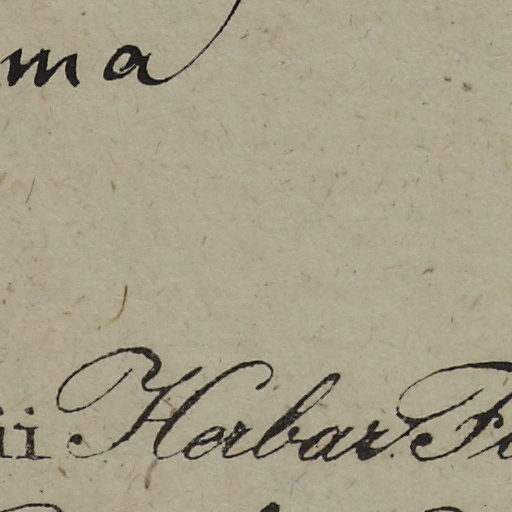 ma
ii Herbar. Fi